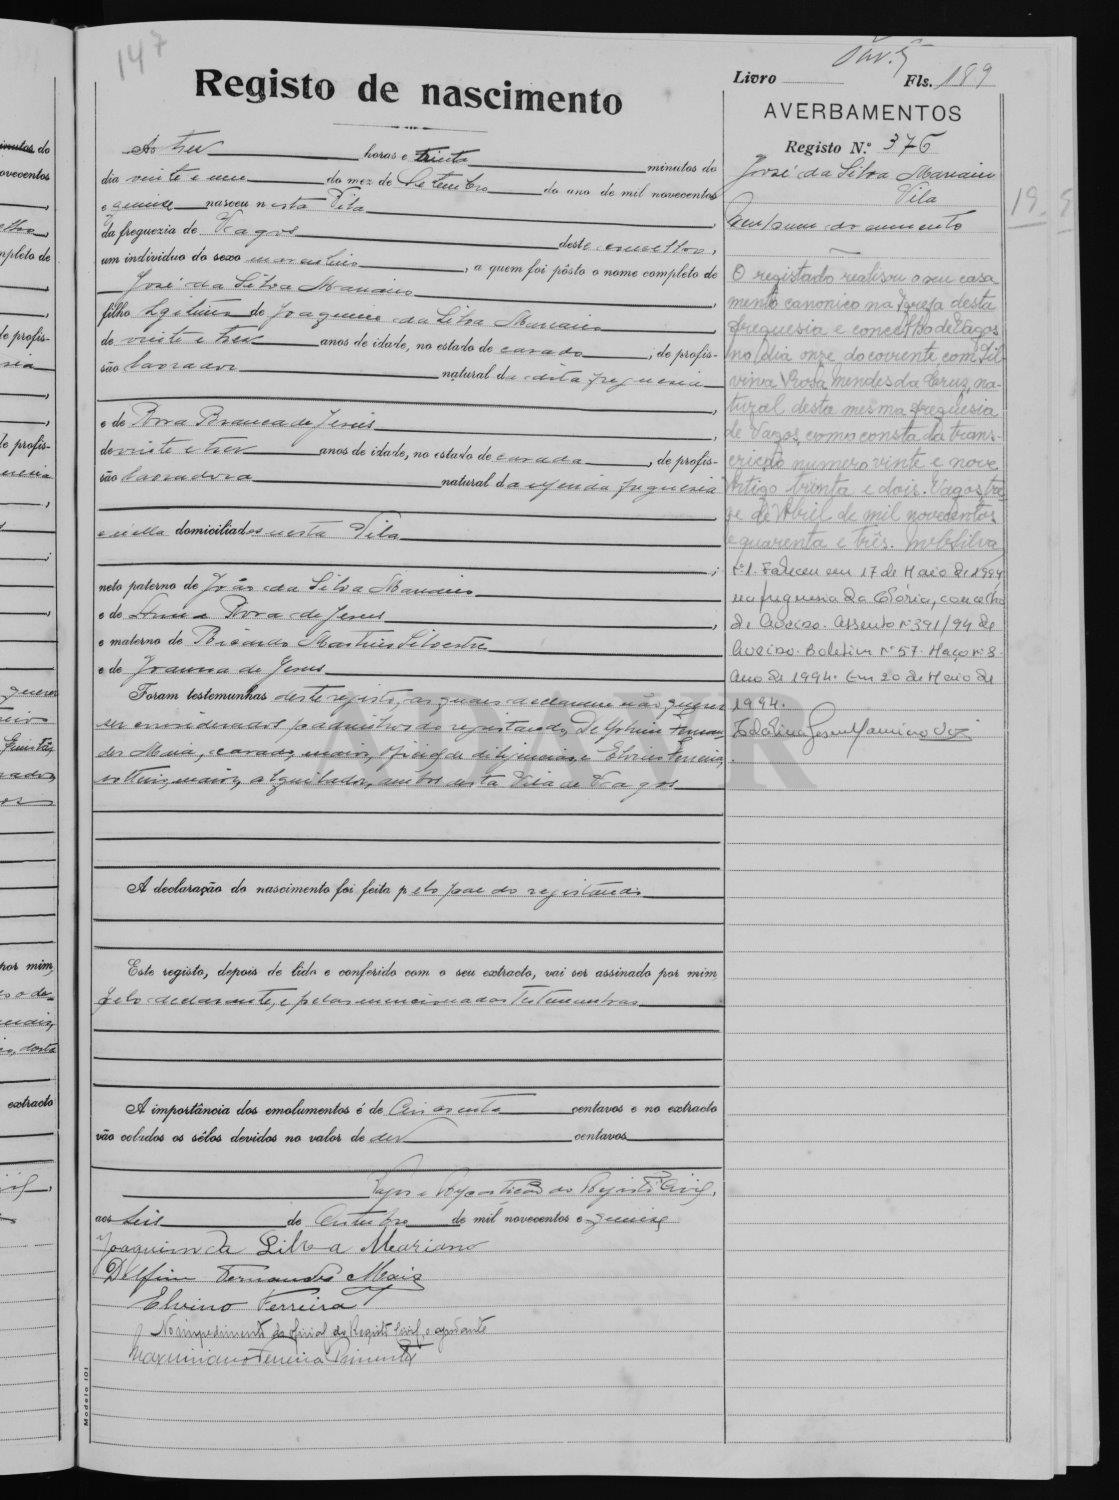 147
Livro Fls. 189
Registo de nascimento
AVERBAMENTOS
Registo N.º 376
José da Silva Mariano
Vila
Nenhum documento
Às tres horas e trinta minutos do
dia vinte e um do mez de Setembro do ano de mil novecentos
e quinze nasceu nesta Vila,
da freguezia de Vagos deste concelho,
um individuo do sexo masculino, a quem foi pôsto o nome completo de
José da Silva Mariano,
filho legitimo de Joaquim da Silva Mariano,
de vinte e tres anos de idade, no estado de casado, de profis-
são lavrador natural da dita freguesia,
e de Rosa Branca de Jesus,
de vinte e tres anos de idade, no estado de casada, de profis-
são lavradora natural da referida freguesia
e nella domiciliados nesta Vila;
neto paterno de João da Silva Mariano
e de Rosa de Jesus,
e materno de Ricardo Martins Silvestre
e de Joanna de Jesus
Foram testemunhas deste registo, as quaes declararam não querer
ser considerados padrinhos do registando, Delphim Fernan-
des Maia, casado, maior, oficial de diligencias, e Elvino Ferreira,
solteiro, maior, alquilador, ambos desta Vila de Vagos
A declaração do nascimento foi feita pelo pae do registando
Este registo, depois de lido e conferido com o seu extracto, vai ser assinado por mim
pelo declarante, e pelas mencionadas testemunhas
A importância dos emolumentos é de cincoenta centavos e no extracto
vão colados os sêlos devidos no valor de dez centavos
Vagos e Repartição do Registo Civil,
aos seis de Outubro de mil novecentos e quinze
Joaquim da Silva Mariano
Delfim Fernandes Maia
Elvino Ferreira
No impedimento do oficial do Registo Civil, o ajudante
Maximiano Ferreira Pimentel
O registado realisou o seu casa-
mento canonico na Igreja desta
freguesia e concelho de Vagos
no dia onze do corrente com Sil-
vina Rosa Mendes da Cruz, na-
tural desta mesma freguesia
de Vagos, como consta da trans-
crição numero vinte e nove
Artigo trinta e dois. Vagos, tre-
ze de Abril de mil novecentos
e quarenta e três. Silva
Nº1. Faleceu em 17 de Maio de 1994
na freguesia da Glória, concelho
de Aveiro. Assento nº 391/94 de
Aveiro. Boletim nº 57. Maço nº 8.
Ano de 1994. Em 20 de Maio de
1994.
ADAVR
Modelo 101
extracto